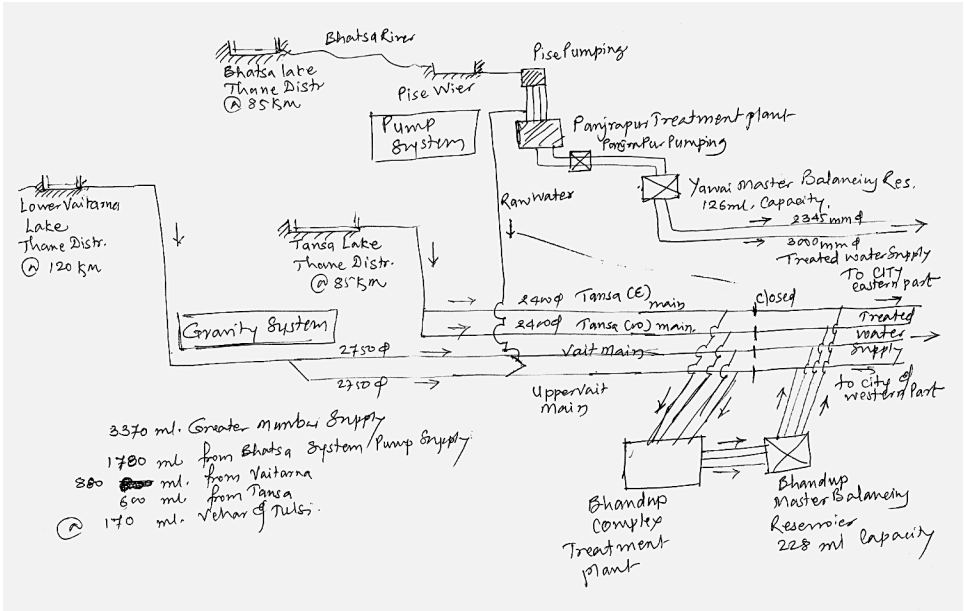 Bhatsa River
Bhatsa lake
Thane Distr
@ 85 Km
Pise Wier
Pise Pumping
Pump
System
Panjrapur Treatment plant
Panjrapur Pumping
Yawai Master Balancing Res.
126ml. Capacity.
2345mm ϕ
3000mm ϕ
Treated water Supply
To CITY
eastern part
Lower Vaitarna
Lake
Thane Distr.
@ 120 Km
Tansa Lake
Thane Distr.
@ 85 Km
Raw Water
Gravity System
2400ϕ Tansa (E) main
2400ϕ Tansa (W) main.
2750 ϕ Vait Main
2750 ϕ Upper Vait
Main
Closed
Treated
water
Supply
to city of
western Part
3370 ml. Greater Mumbai Supply
1780 ml from Bhatsa System/Pump Supply.
880 ml. from Vaitarna
600 ml from Tansa
@ 170 ml. Vehar & Tulsi.
Bhandup
Complex
Treatment
plant
Bhandup
Master Balancing
Reservoier
228 ml Capacity